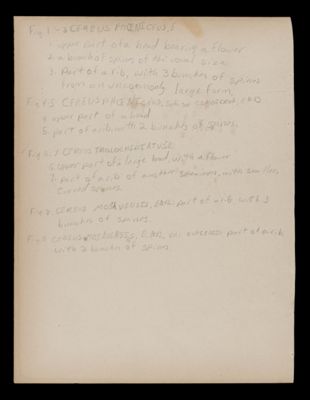 Fig 1-3 CEREUS PHOENICEUS, E
1 upper part of a head bearing a flower
2 a bunch of spines of the usual size
3. Part of a rib, with 3 bunches of spines
from an uncommonly large form,
Fig 4-5 CEREUS
4 upper part of a head
5. part of a rib with 2 bunches of spines.
Fig 6-7 CEREUS
6 upper part of a large head, with a flower
7. part of a rib of another specimen, with smaller,
curved spines.
CEREUS MOJAVENSIS, part of a rib with 3
bunches of spines.
CEREUS part of a rib
with 2 bunches of spines